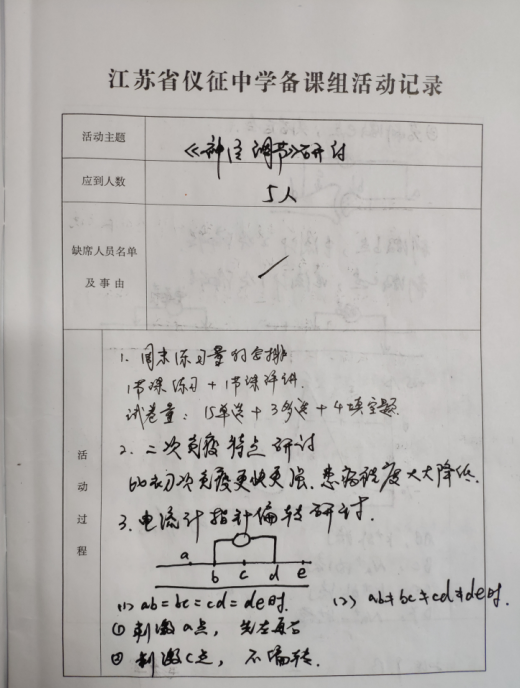 江苏省仪征中学备课组活动记录
活动主题
《神经调节》研讨
应到人数
5人
缺席人员名单
及事由
活动过程
1. 周末练习量的安排
1节课练习 + 1节课评讲.
试卷量: 15单选 + 3多选 + 4填空题.
2. 二次免疫特点研讨
比初次免疫更快更强、患病程度大大降低.
3. 电流计指针偏转研讨.
a b c d e
(1) ab = bc = cd = de时. (2) ab≠bc≠cd≠de时.
① 刺激a点, 先左再右
② 刺激c点, 不偏转.